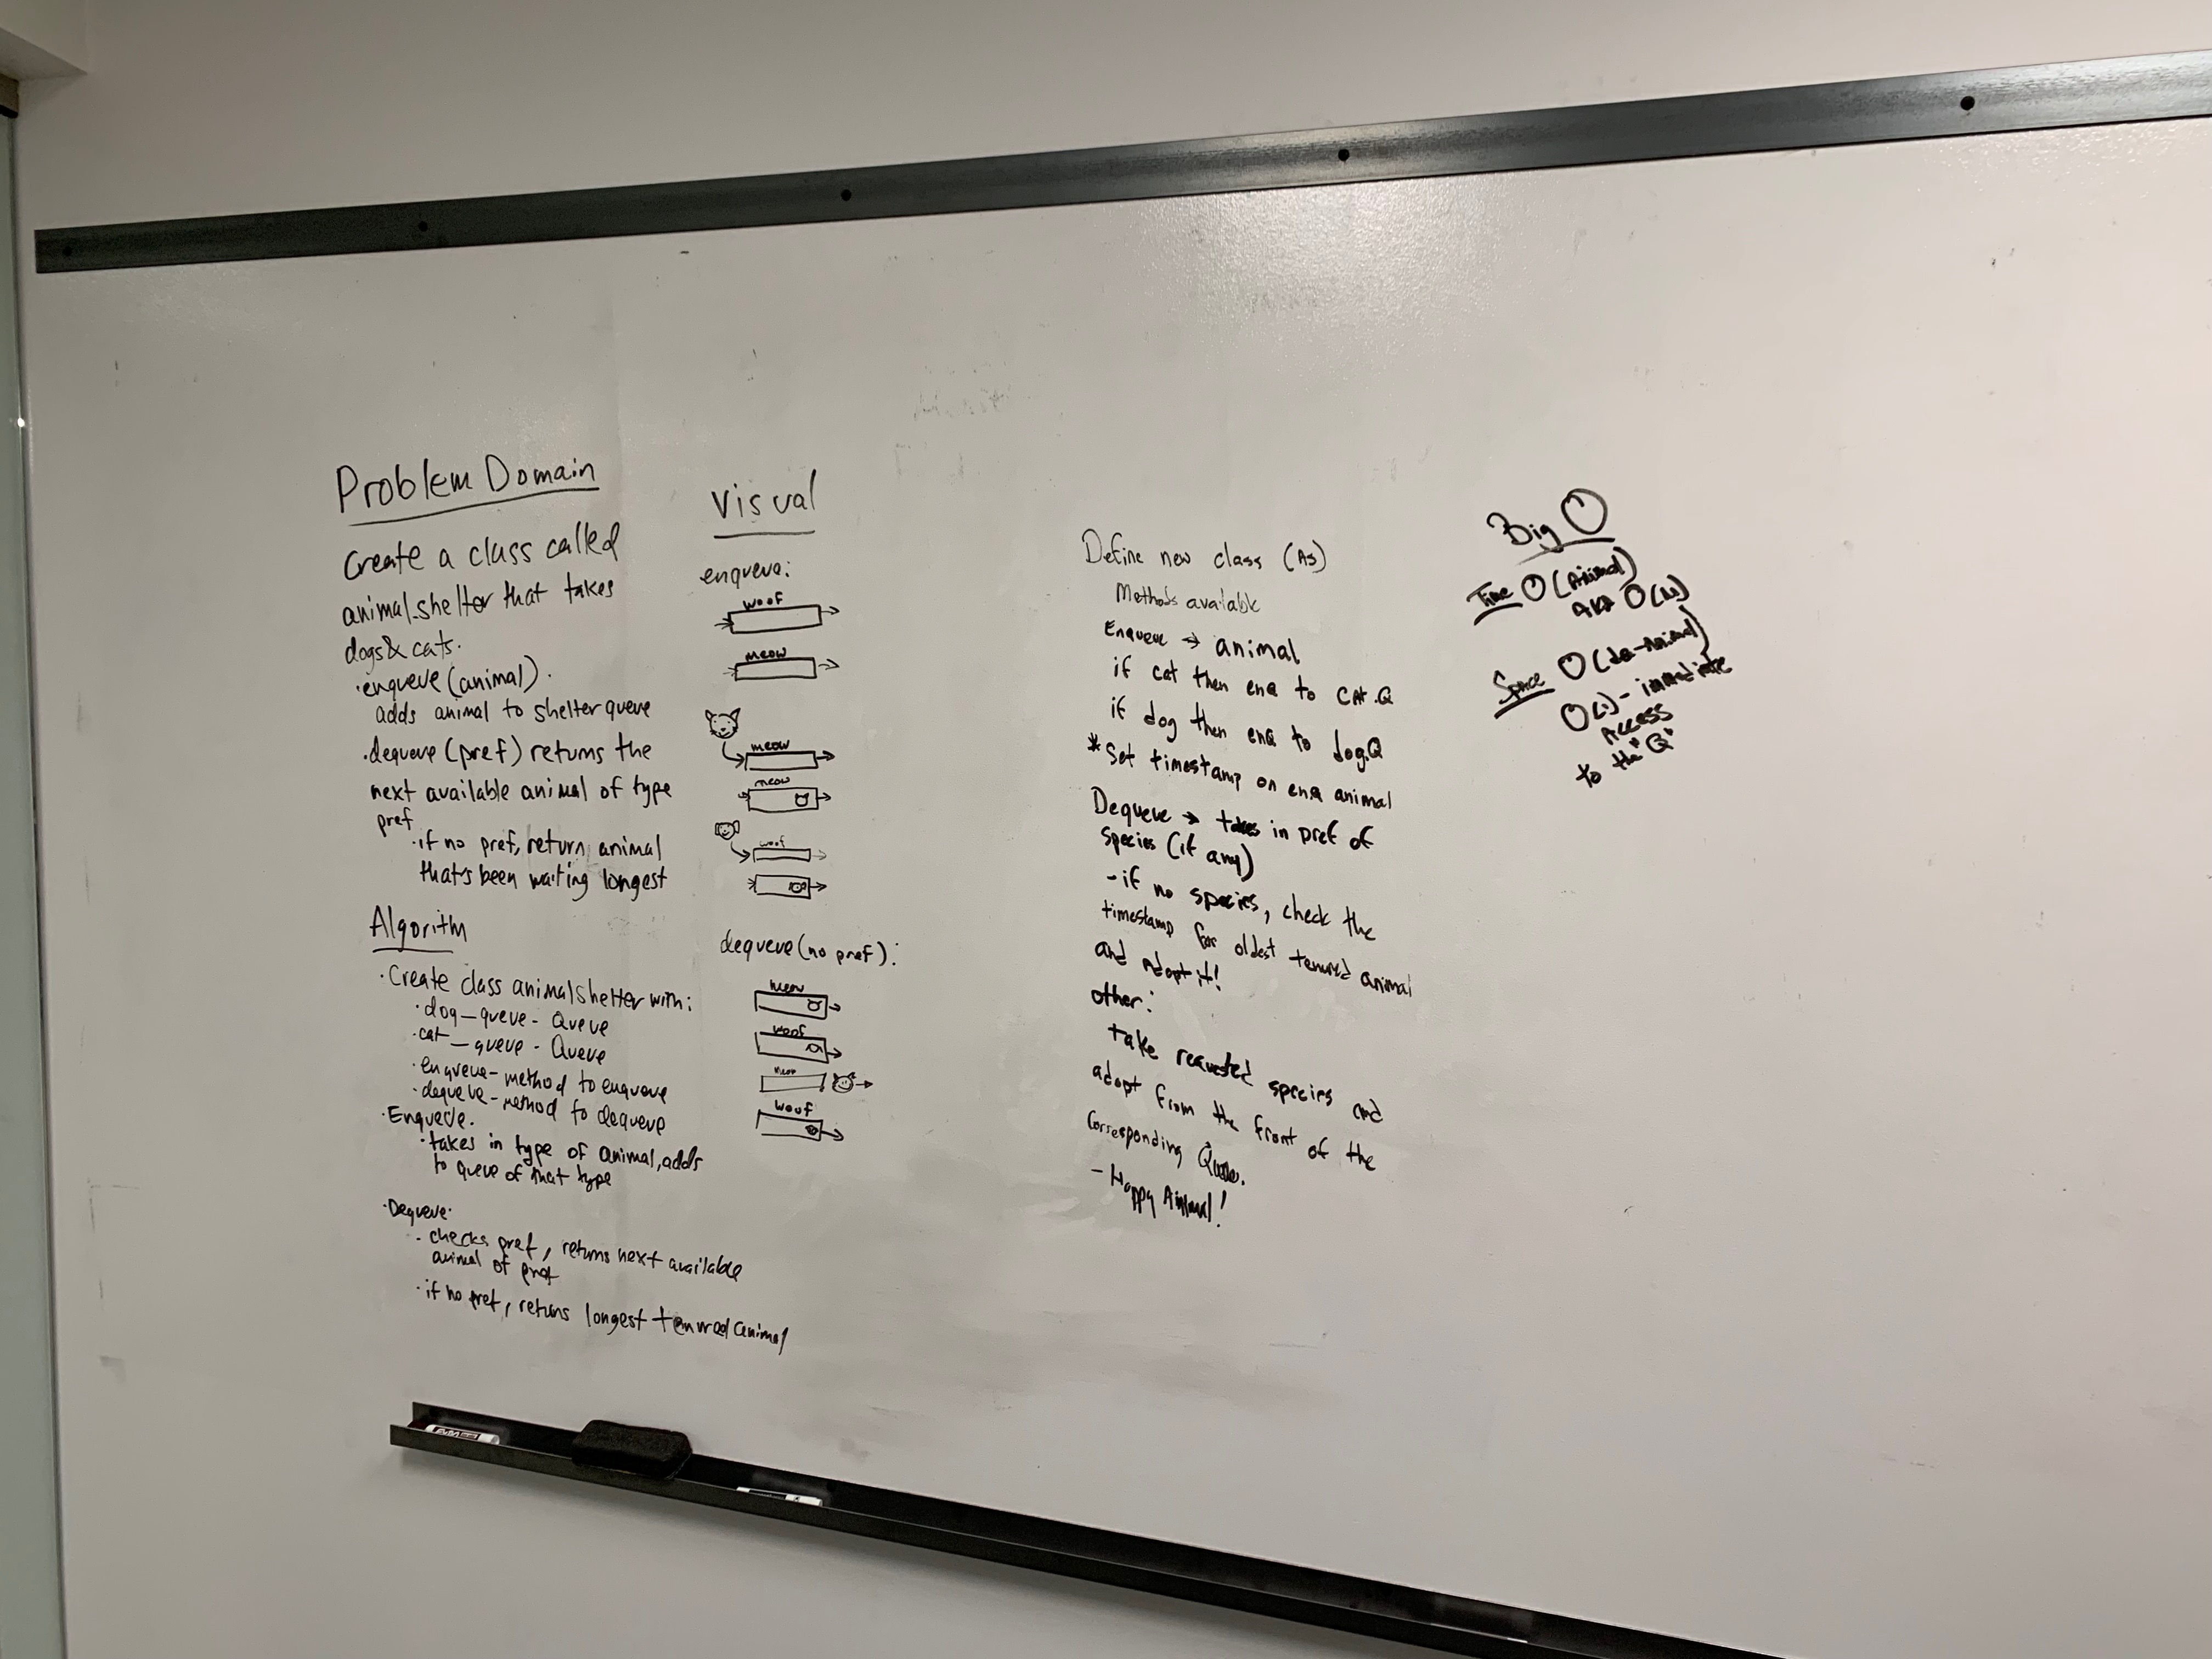 Problem Domain
Create a class called
animal_shelter that takes
dogs & cats.
• enqueue (animal).
adds animal to shelter queue
• dequeue (pref) returns the
next available animal of type
pref
• if no pref, return animal
that's been waiting longest
Algorithm
• Create class animalshelter with:
• dog_queue - Queue
• cat_queue - Queue
• enqueue - method to enqueue
• dequeue - method to dequeue
• Enqueue.
• takes in type of animal, adds
to queue of that type
• Dequeue.
- checks pref, returns next available
animal of pref
• if no pref, returns longest tenured animal
Visual
enqueue:
woof
meow
meow
meow
woof
dequeue (no pref):
meow
woof
meow
woof
Define new class (AS)
Methods available
Enqueue → animal
if cat then enQ to CAT.Q
if dog then enQ to dog.Q
* Set timestamp on enQ animal
Dequeue → takes in pref of
species (if any)
- if no species, check the
timestamp for oldest tenured animal
and adopt it!
other:
take requested species and
adopt from the front of the
corresponding Queue.
- Happy Animal!
Big O
Time O(Animal)
AKA O(N)
Space O(de-Animal)
O(1) - immediate
Access
to the "Q"